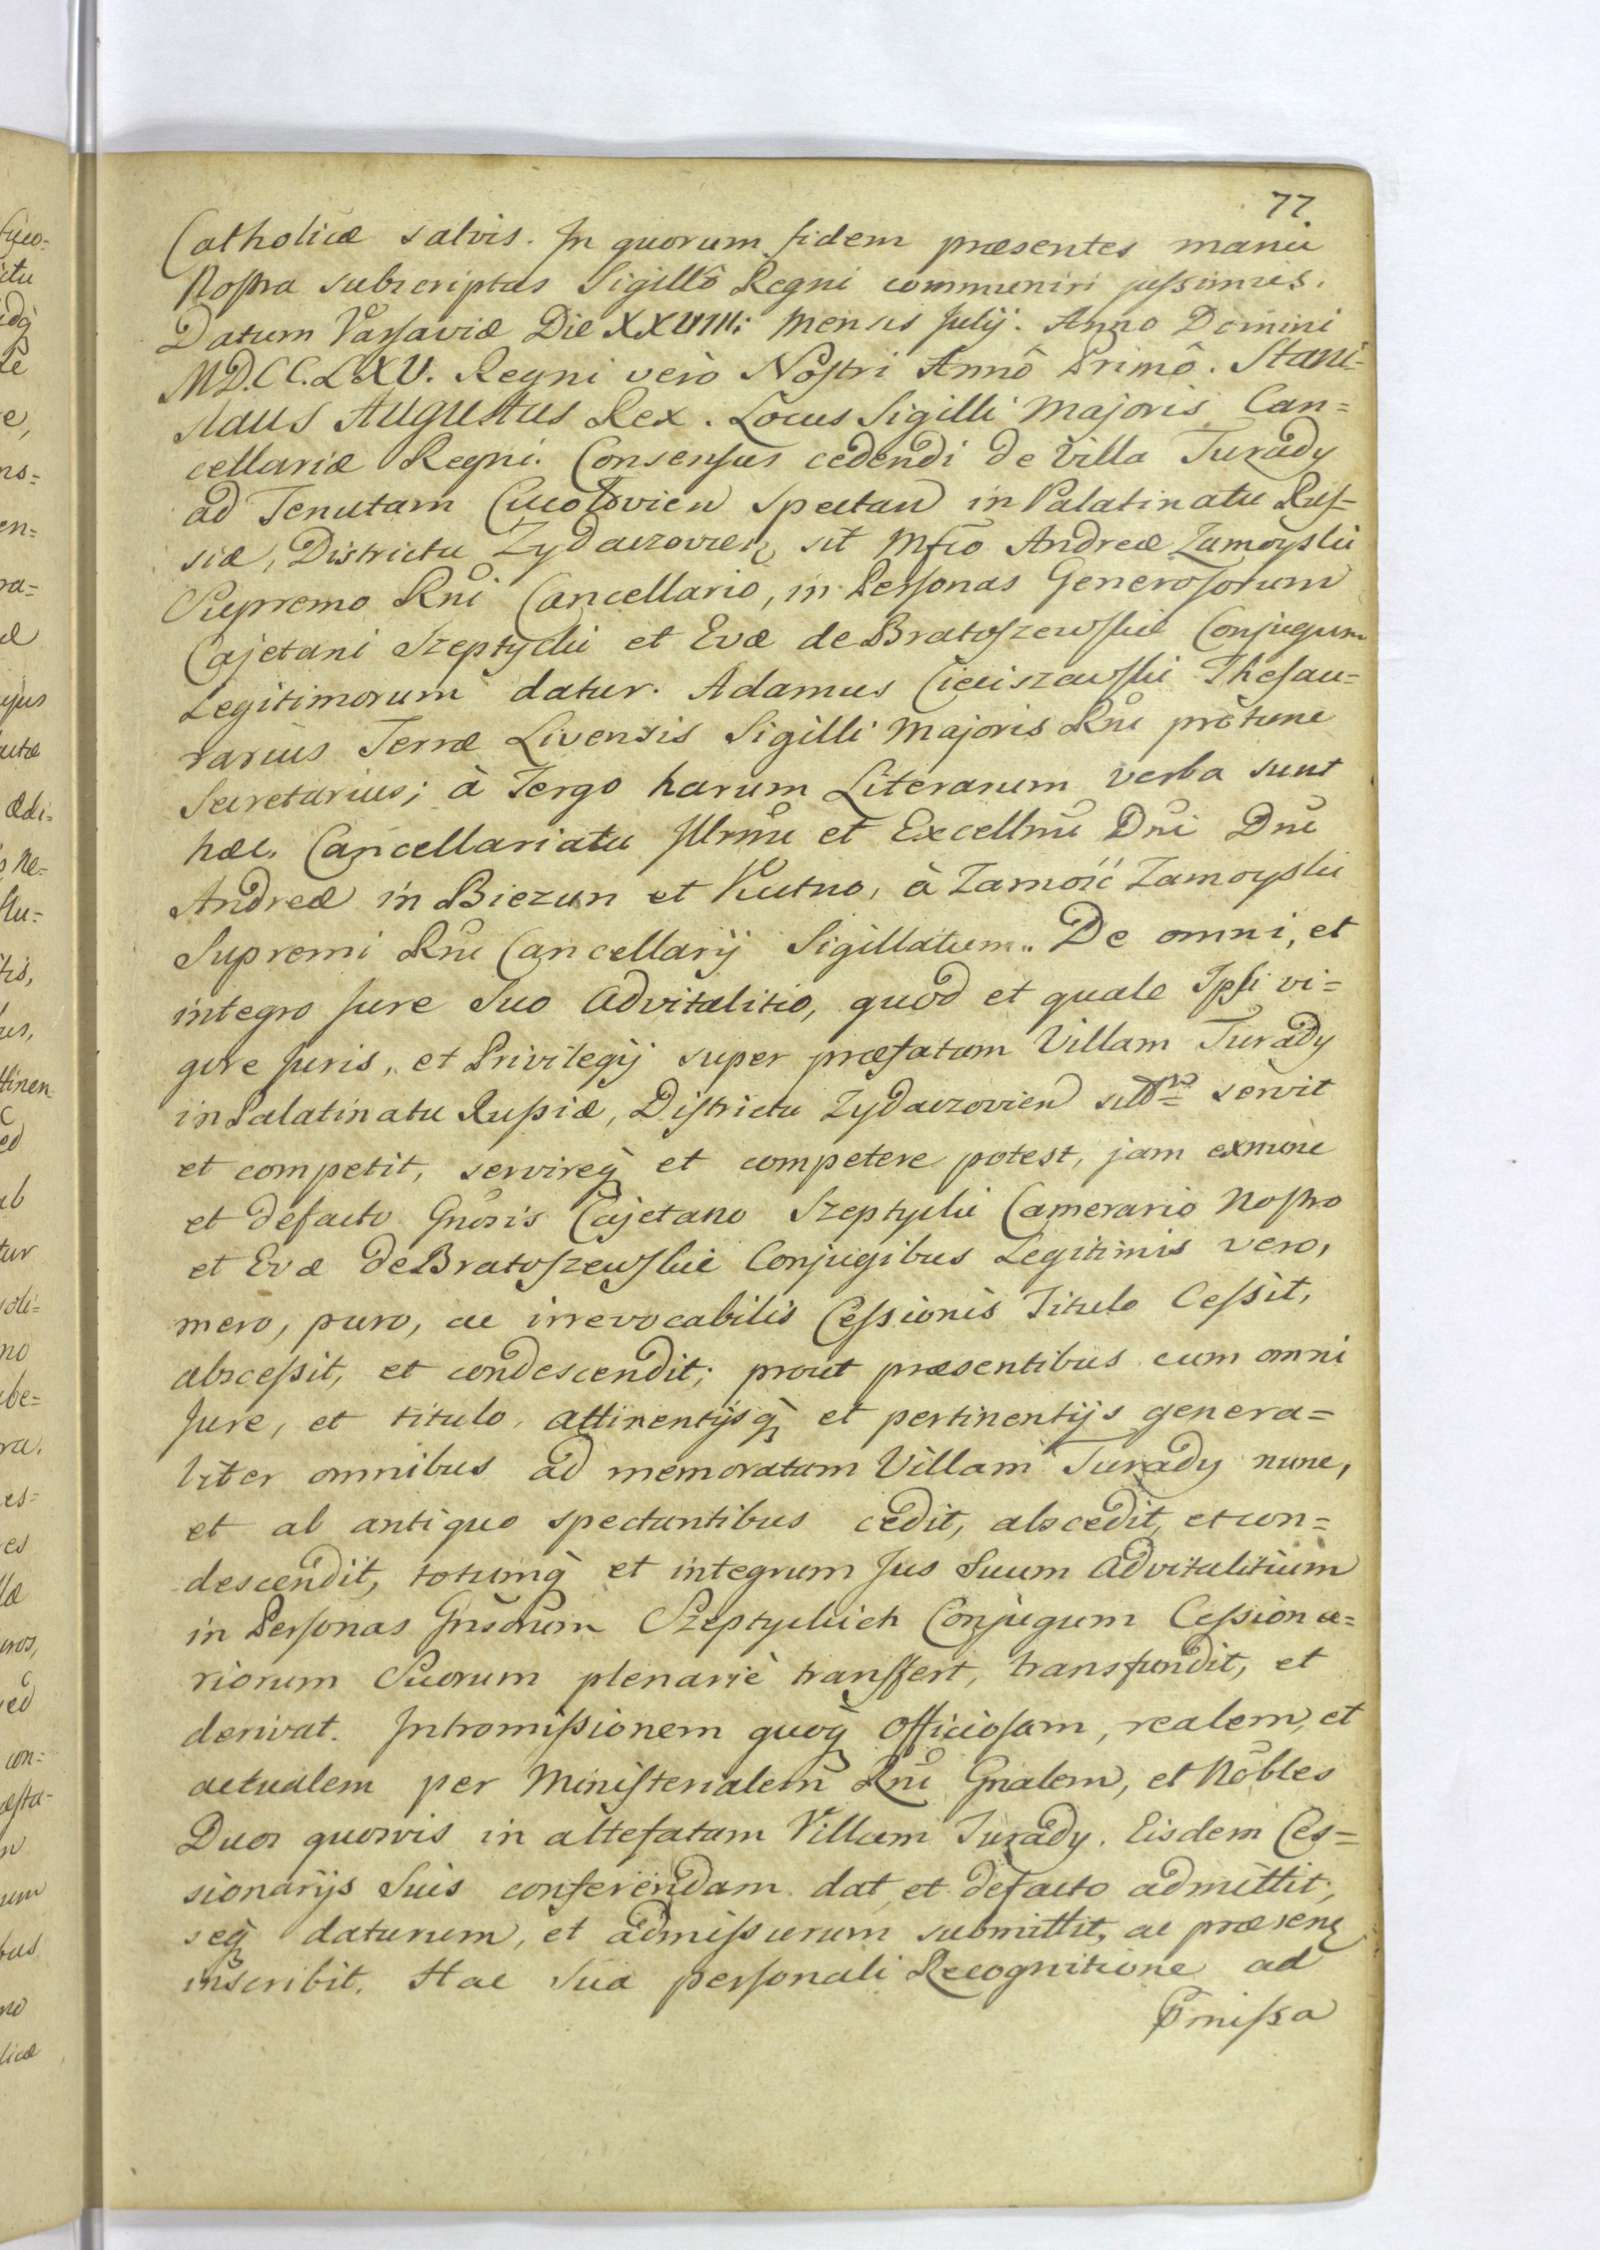 77.
Catholicæ salvis. In quorum fidem præsentes manu
Nostra subscriptas Sigillô Regni communiri jussimus.
Datum Varsaviæ Die XXVIIII: Mensis Julij. Anno Domini
MD.CC.LXV. Regni verò Nostri Annô Primô. Stani-
slaus Augustus Rex. Locus Sigilli Majoris Can=
cellariæ Regni. Consensus cedendi de Villa Turady
ad Tenutam Cucolovien spectan in Palatinatu Rus=
siæ, Districtu Zydaczovien sit Mfco Andreæ Zamoyski
Supremo Rni Cancellario, in Personas Generosorum
Cajetani Szeptycki et Evæ de Bratoszewskie Conjugum
Legitimorum datur. Adamus Cieciszewski Thesau=
rarius Terræ Livensis Sigilli Majoris Rni prõtunc
Secretarius; à Tergo harum Literarum verba sunt
hæc. Cancellariatu Illrmi et Excellmi Dni Dni
Andreæ in Biezun et Kutno, à Zamość Zamoyski
Supremi Rni Cancellarij Sigillatum. De omni, et
integro Jure Suo Advitalitio, quod et quale Ipsi vi=
gore Juris, et Privilegij super præfatam Villam Turady
in Palatinatu Russiæ, Districtu Zydaczovien servit
et competit, servireq et competere potest, jam exnunc
et defacto Gnosis Cajetano Szeptycki Camerario Nostro
et Evæ de Bratoszewskie Conjugibus Legitimis vero,
mero, puro, ac irrevocabilis Cessionis Titulo Cessit,
abscessit, et condescendit; prout præsentibus cum omni
Jure, et titulo, attinentijsq et pertinentijs genera=
liter omnibus ad memoratam Villam Turady nunc,
et ab antiquo spectantibus cedit, abscedit, et con=
descendit, totumq et integrum Jus Suum Advitalitium
in Personas Gnsorum Szeptyckich Conjugum Cessiona=
riorum Suorum plenariè transfert, transfundit, et
derivat. Intromissionem quoq Officiosam, realem, et
actualem per Ministerialem Rni Gnalem, et Nobles
Duos quosvis in attefatam Villam Turady. Eisdem Ces=
sionarijs Suis conferendam dat, et defacto admittit;
seq daturum, et admissurum submittit, ac præsen
inscribit. Hac Sua personali Recognitione ad
Pmissa